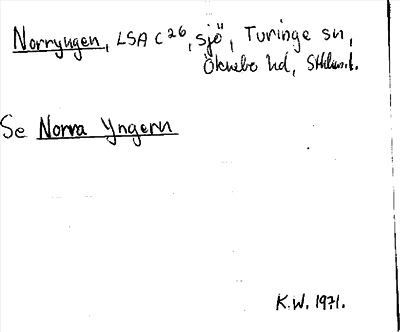 Norryngen, LSA C26, sjö, Turinge sn,
Öknebo hd, Sthlms l.
Se Norra Yngern
K.W. 1971.